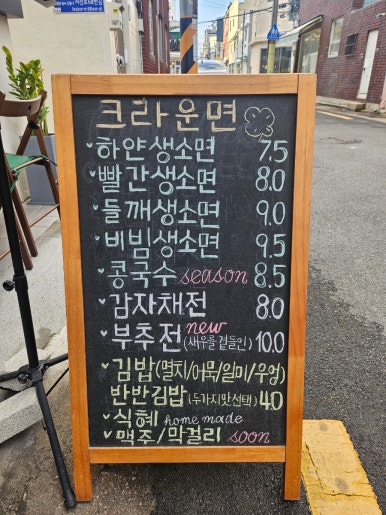 크라운면
하얀생소면 7.5
빨간생소면 8.0
들깨생소면 9.0
비빔생소면 9.5
콩국수 season 8.5
감자채전 8.0
부추전 new (새우를곁들인) 10.0
김밥(멸치/어묵/일미/우엉)
반반김밥(두가지맛선택) 4.0
식혜 home made
맥주/막걸리 soon